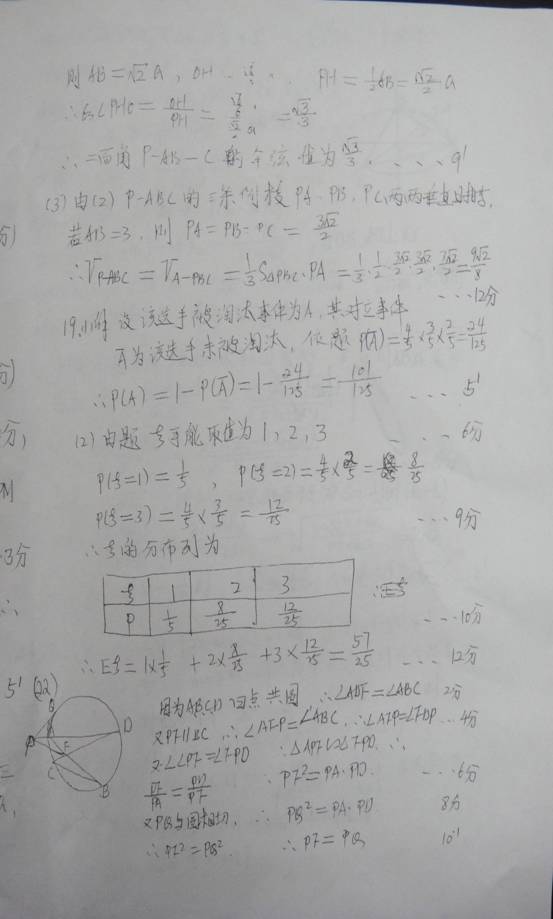 则AB=√2a, OH
PH=½AB=√2/2 a
∴cos∠PHO=OH/PH= =√3/3
∴二面角P-AB-C的余弦值为√3/3. ....9'
(3)由(2) P-ABC的三条侧棱PA、PB、PC两两垂直
若AB=3, 则PA=PB=PC=3√2/2
∴V_{P-ABC}=V_{A-PBC}=1/3 S_{△PBC}·PA=1/3·1/2·3√2/2·3√2/2·3√2/2=9√2/8
...12分
19.(1)解 设该选手被淘汰事件为A,其对立事件
Ā为该选手未被淘汰, 依题P(Ā)=4/5×3/5×2/5=24/125
∴P(A)=1-P(Ā)=1-24/125=101/125 ... 5'
(2)由题ξ可能取值为1,2,3 ...6分
P(ξ=1)=1/5, P(ξ=2)=4/5×2/5=8/25
P(ξ=3)=4/5×3/5=12/25 ...9分
∴ξ的分布列为
ξ 1 2 3
P 1/5 8/25 12/25 ...10分
∴Eξ=1×1/5+2×8/25+3×12/25=57/25 ...12分
5' (22)
因为ABCD四点共圆 ∴∠ADF=∠ABC 2分
又PF∥BC ∴∠AFP=∠ABC ∴∠AFP=∠FDP ...4分
又∠APF=∠FPD ∴△APF∽△FPD ∴
PF/PA=PD/PF ∴PF²=PA·PD ...6分
又PQ与圆相切, ∴PQ²=PA·PD 8分
∴PF²=PQ² ∴PF=PQ 10'
A
D
F
C
B